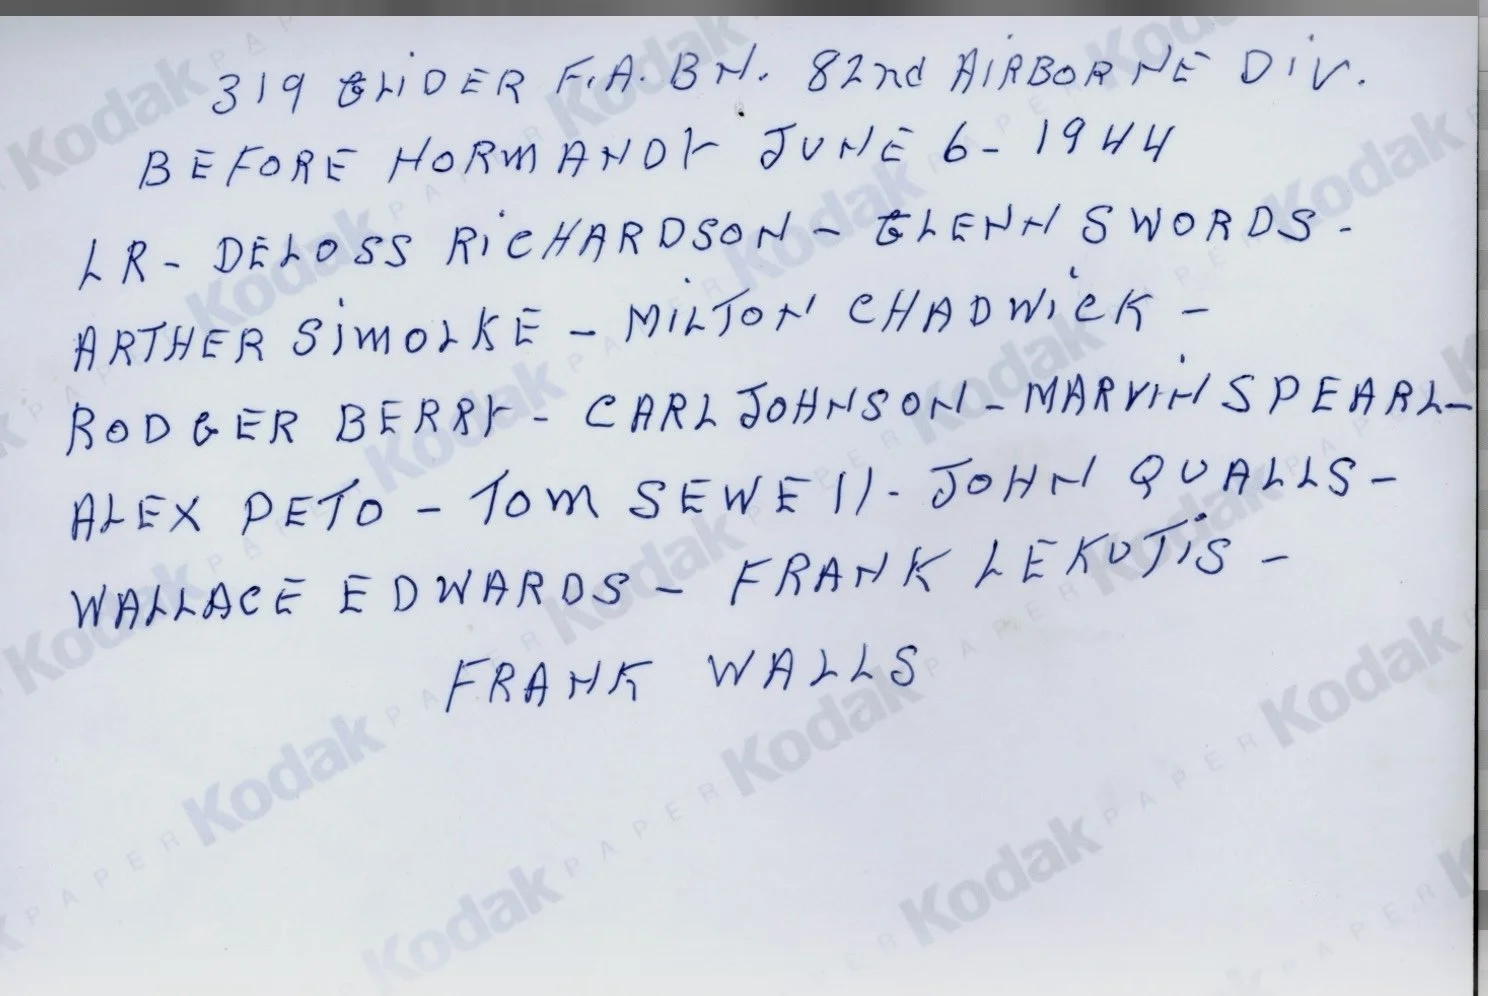 319 GLiDER F.A. BN. 82nd AiRBORNE DiV.
BEFORE NORMANDY JUNE 6-1944
LR- DELOSS RiCHARDSON - GLENN SWORDS -
ARTHER SiMOLKE - MiLTON CHADWiCK -
RODGER BERRY - CARL JOHNSON - MARViN SPEARL -
ALEX PETO - TOM SEWELL - JOHN QUALLS -
WALLACE EDWARDS - FRANK LEKUTiS -
FRANK WALLS
Kodak PAPER